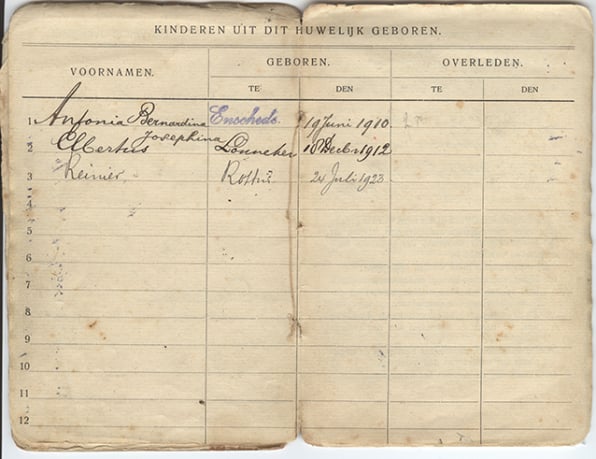 KINDEREN UIT DIT HUWELIJK GEBOREN.
VOORNAMEN. GEBOREN. OVERLEDEN.
TE DEN TE DEN
1 Antonia Bernardina Enschede. 19 Juni 1910
Josephina
2 Albertus Lonneker 18 Decbr 1912
3 Reinier 24 Juli 1923
4
5
6
7
8
9
10
11
12